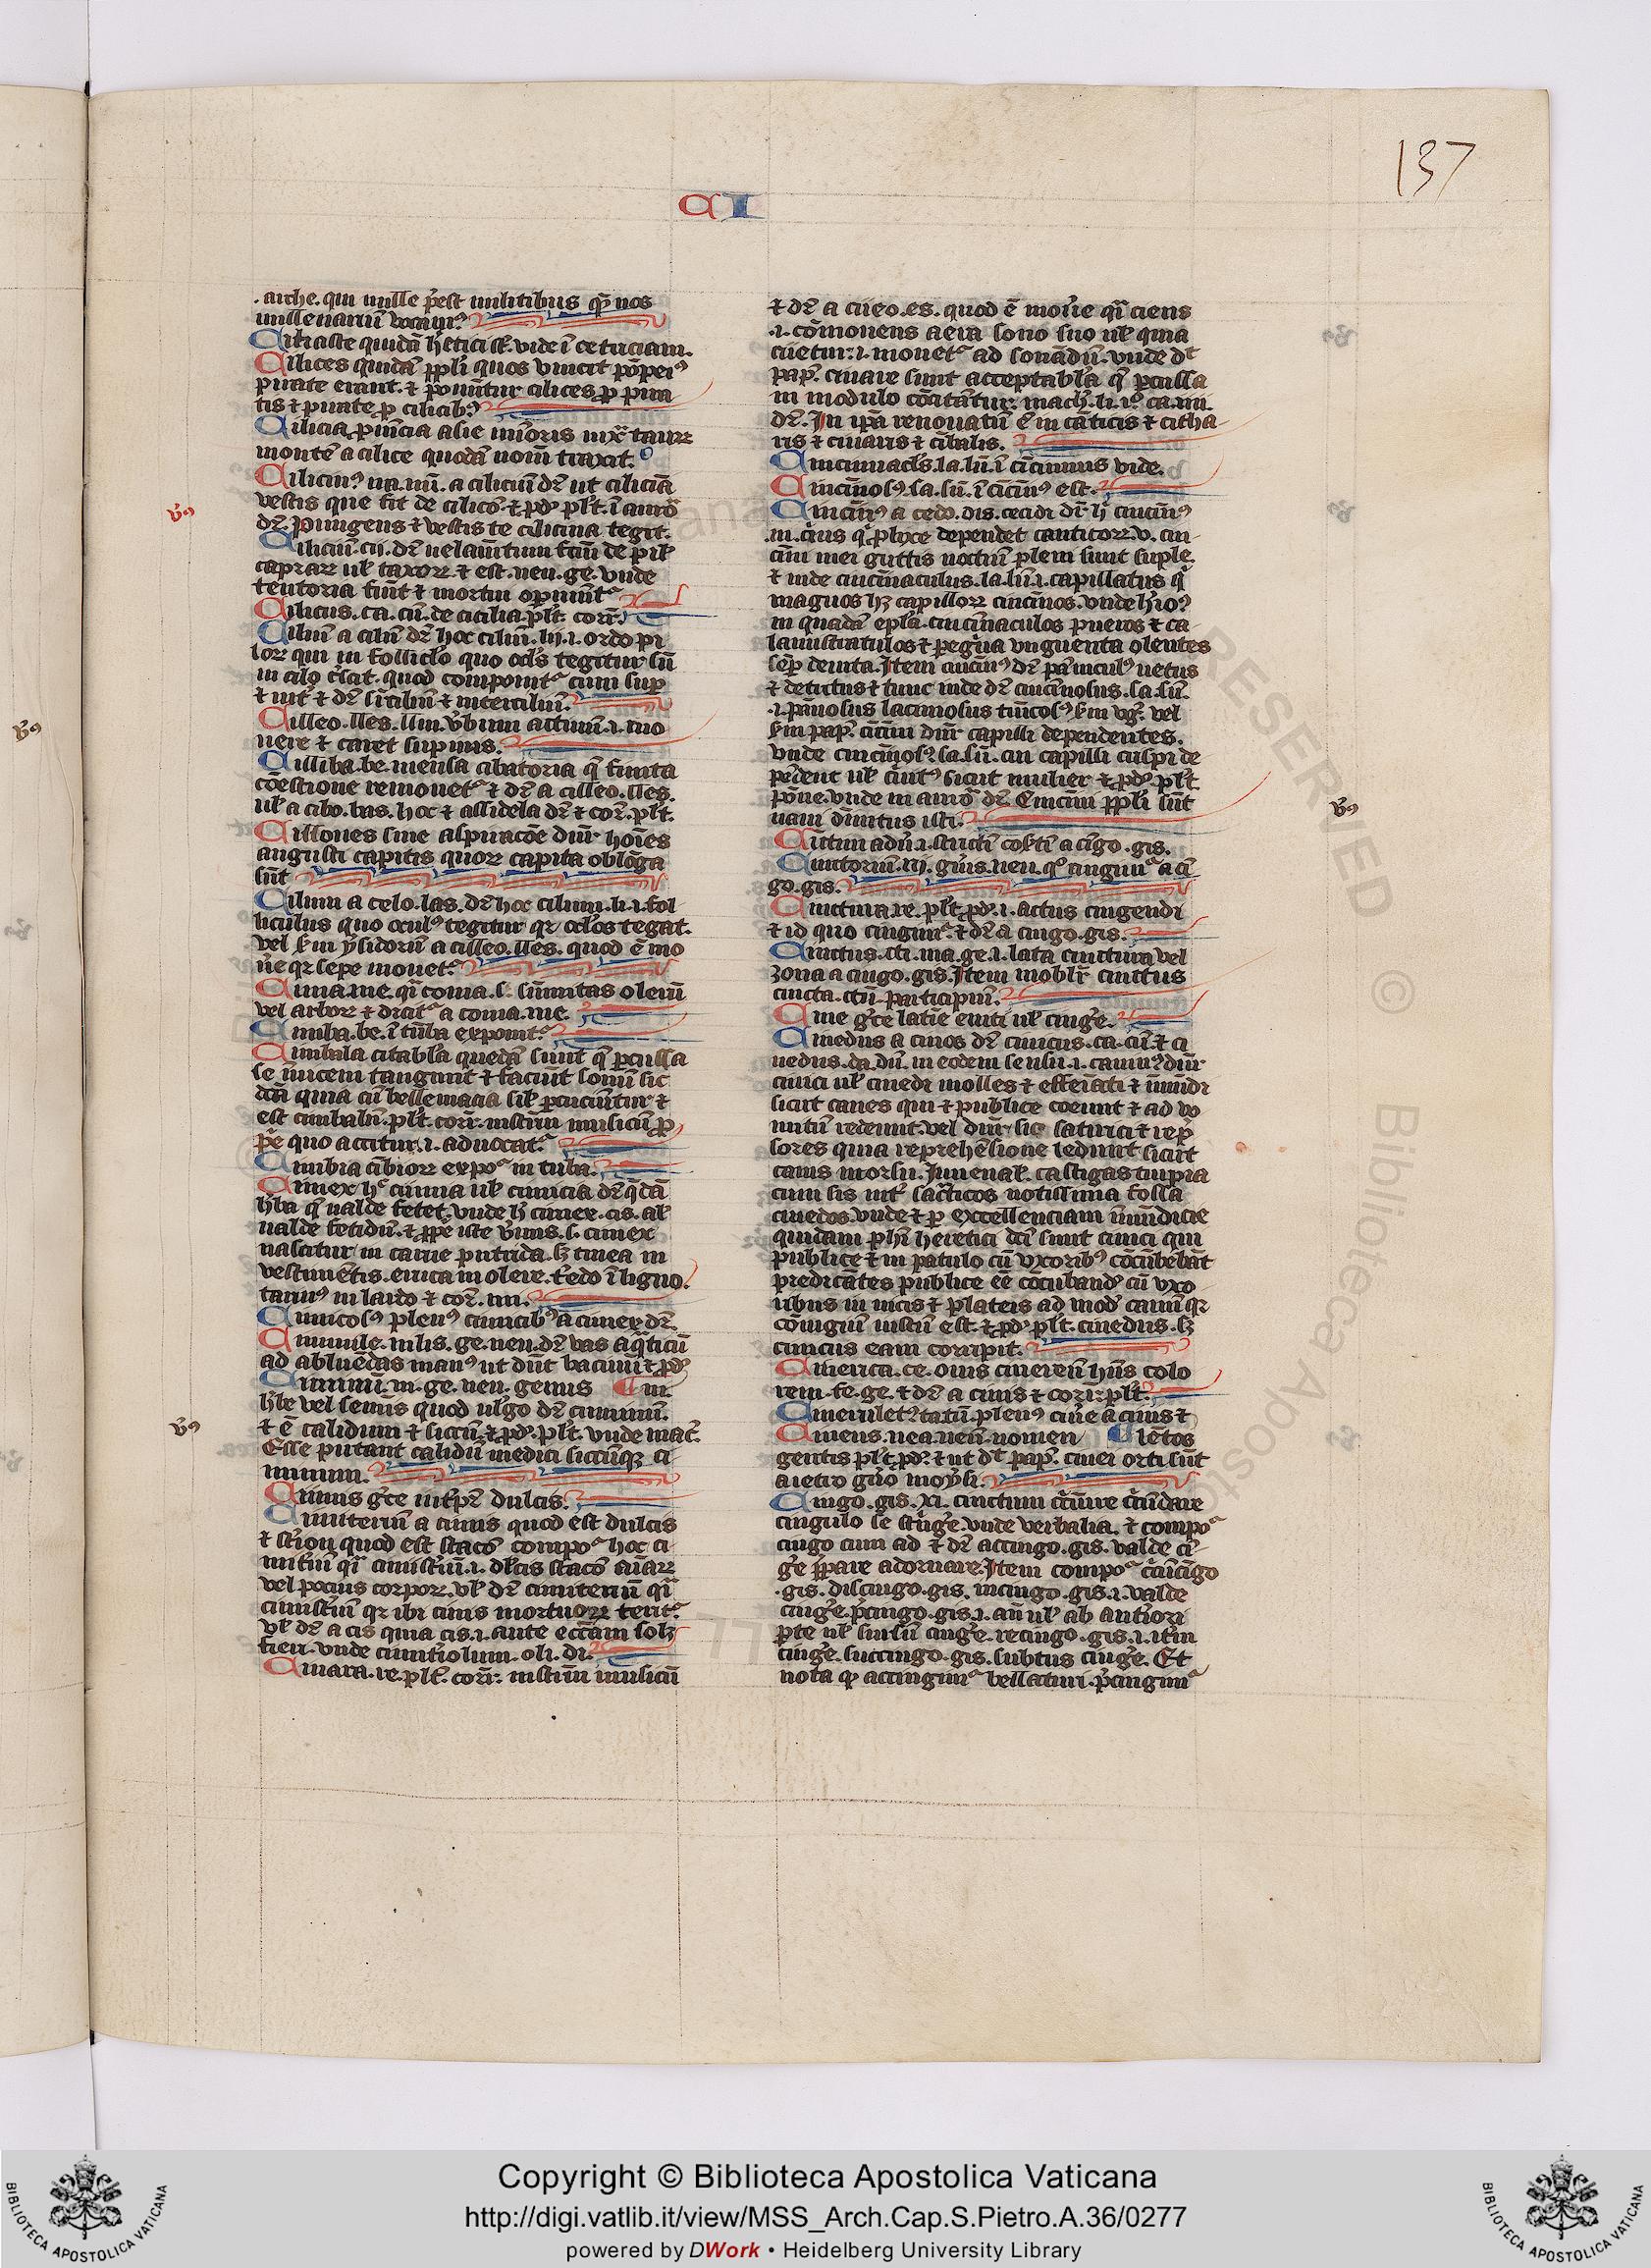 137
CI
.arche. qui mille p̄est militibus q̄ nos
millenariū vocam⁹
Ciliaste quidā h̄etici s̄t. vide ī ce tuciam.
Cilices quidā pp̄li quos vincit pōpei⁹
pirate erant. ⁊ ponūtur cilices p̱ pira
tis ⁊ pirate p̱ cilicib⁹
Cilicia p̱uīcia asie mīoris iux̄ taurꝝ
montē a cilice quodā noīe traxit.
Cilicin⁹ na. nū. a ciliciū dr̄ ut cilicīa
vestis que fit de cilico. ⁊ p̱d̄ pl̄t. ī aurō
dr̄. pungens ⁊ vestis te cilicina tegit.
Ciliciū. cij. dr̄ uelamītum f̄cm̄ de pil̄
caprarꝝ ul̄ taxorꝝ ⁊ est. neu. ge. vnde
tentoria fiūt ⁊ mortui operiunt᷑
Cilicus. ca. cū. de cicilia. pl̄t. corr̄.
Ciliū a cilīū dr̄ hoc ciliū. lij. i. ordo pi
lorꝝ qui in follicl̄o quo ocl̄s tegitur sū
⁊ int᷑ ⁊ dr̄ sup̱ciliū ⁊ interciliū.
Cilleo. lles. llui. v̄bum actiuū. i. mo
uere ⁊ caret supinis.
Cilliba. be. mensa cibatoria q̄ finita
cōestione remouet᷑ ⁊ dr̄ a cilleo. lles.
ul̄ a cibo. bas. hoc ⁊ assidela dr̄ ⁊ cor̄. pl̄t.
Cillones sine aspiracōe dīn̄r hoīes
angusti capitis quorꝝ capita oblōga
sūt
Cilium a celo. las. dr̄ hoc cilium. lij. i. fol
liculus quo ocul⁹ tegitur qꝛ ocl̄os tegat.
vel s̄m ysidorū a cilleo. lles. quod ē mo
u̇e qꝛ sepe mouet᷑
Cima. me. q̄i coma. s. sūmitas olerū
vel arborꝝ ⁊ dicit᷑ a coma. me.
Cimba. be. ī tūba exponit᷑
Cimbala citabl̄a quedā sunt q̄ p̱cussa
se īuicem tangunt ⁊ faciūt sonū sic
dc̄ā quia cū bellematia sil̄ p̱cuciūtur ⁊
est cimbalū. pl̄t. corr̄. instr̄m musicū p̱
p̄e quo accitur. i. aduocat᷑
Cimbria cībiorꝝ expo᷑ in tuba.
Cimex hc̄ cimia ul̄ cimicia dr̄ q̄dā
h̄ba q̄ ualde fetet. vnde h̄ cimex. cis. al̄
ualde fetidū. ⁊ p̱p̄e iste v̄mis. s. cimex
nascitur in carne putrida. s̄ tinea in
vestimētis. eruca in olere. t̄edo ī ligno.
tarm⁹ in lardo ⁊ cor̄. mi.
Cimicos⁹ plen⁹ cimicib⁹ a cimex dr̄.
Cimile. mlis. ge. neu. dr̄ vas aq̄ticū
ad abluēdas man⁹ ut dn̄t bacinū ⁊ p̱d̄
Ciminū. ni. ge. neu. genus
h̄be vel seminis quod ulgo dr̄ cuminū.
⁊ ē calidum ⁊ siccū. ⁊ p̱d̄. pl̄t. vnde mac̄.
Esse putant calidū medici siccūqꝫ ci
minum.
Cimus gr̄ce int̄pr̄ dulcis.
Cimiteriū a cimis quod est dulcis
⁊ st̄ion quod est stacō compo᷑ hoc ci
mit̄iū q̄i cimist̄iū. i. dl̄cis stacō aīarꝝ
vel pocius corporꝝ. ul̄ dr̄ cimiteriū q̄i
cinist̄iū qꝛ ibi cinis mortuorꝝ tenet᷑
ul̄ dr̄ a cis quia cis. i. ante ecc̄iam solꝫ
fieri. vnde cimit̄iolum. oli. di.
Cinara. re. pl̄t. corr̄. instr̄m musicū
⁊ dr̄ a cueo. es. quod ē mou̇e q̄i ciens
.i. cōmouens aera sono suo ul̄ quia
cīetur. i. mouet᷑ ad sonādū. vnde dt̄
pap̄. cinare sunt acceptabl̄a q̄ p̱cussa
in modulo cōcitātur. mach̄. li. i⁰. ca. iiii.
dr̄. In ip̄a renouatū ē in cāticis ⁊ citha
ris ⁊ cinaris ⁊ cībalis.
Cincinnacl̄s. la. lū. ī cīcinnus vide.
Cincīnos⁹. sa. sū. ī cīcīn⁹ est.
Cincīn⁹ a cedo. dis. cecidi dr̄ h̄ cincīn⁹
.ni. crīs q̄ plixe dependet canticorꝝ. v. cin
cīni mei guttis noctiū. plem sunt suple.
⁊ inde cincīnaculus. la. lū. i. capillatus q̄
magnos hꝫ capillorꝝ cincīnos. vnde h̄ro⁹
in quadā epl̄a. cincīnaculos pueros ⁊ ca
lamistratulos ⁊ pegrīa vnguenta olentes
sēp̱ deuita. Item cincīn⁹ dr̄ pānicul⁹ uetus
⁊ detritus ⁊ tunc inde dr̄ cincīnosus. sa. sū.
.i. pānosus laciniosus tūicos⁹ s̄m vḡ̱. vel
s̄m pap̄. cīcīni dīn̄r capilli dependentes.
vnde cincīnos⁹. sa. sū. cui capilli crispi de
pēdent ul̄ cīnt⁹ sicut mulier ⁊ p̱d̄ pl̄t.
pōne. vnde in aurō dr̄. Cincīni pp̄li sūt
uani dīnitus isti.
Cīctim adu̇. i. strictī cōst̄cī a cīgo. gis.
Cinctoriū. rij. gn̄is. neu. q̄ cingim᷑ a cī
go. gis.
Cinctura. re. pl̄t. p̱d̄. i. actus cingendi
⁊ id quo cingim᷑. ⁊ dr̄ a cingo. gis.
Cinctus. cti. ma. ge. i. lata cinctura vel
zona a cingo. gis. Item mobil̄r cinctus
cincta. ctū. participiū.
Cine gr̄ce latīe emi ul̄ cinge.
Cinedus a cinos dr̄ cinicus. ca. cū. ⁊ ci
nedus. da. dū. in eodem sensu. i. canin⁹. dīn̄r
cinici ul̄ cinedi molles ⁊ effeīati ⁊ īmūdi
sicut canes qui ⁊ publice coeunt ⁊ ad vo
mitū redeunt. vel dīn̄r sic satirici ⁊ rep̱
sores quia reprehēsione ledunt sicut
canis morsu. Juuenal̄. castigas turpia
cum sis int᷑ socraticos notissima fossa
cinedos. vnde ⁊ p̱ excellenciam īmūdicie
quidam ph̄i heretici dc̄i sunt cinici qui
publice ⁊ in patulo cū vxorib⁹ cōcūbebāt
predicātes publice eē cōcubandū cū vxo
ribus in uicis ⁊ plateis ad modū canū qꝛ
cōiugiū iustū est. ⁊ p̱d̄ pl̄t. cinedus. s̄
cinicus eam corripit.
Cinerica. ce. ouis cinereū h̄ns colo
rem. fe. ge. ⁊ dr̄ a cinis ⁊ corr̄. pl̄t.
Cinerulet⁹. ta. tū. plen⁹ cin̄e a cinis ⁊
Cineus. nea. neū. nomen ¶ lētos
gentis pl̄t. p̱d̄. ⁊ ut dt̄ pap̄. cinei orti sūt
a ietro gn̄o moysi.
Cingo. gis. xi. cinctum cīrcūire cīrcūdare
cingulo se strīge. vnde verbalia. ⁊ compo᷑
cingo cum ad ⁊ dr̄ accingo. gis. valde cī
ge p̱pare adornare. Item compo᷑ cīrcūcīgo
.gis. discingo. gis. incingo. gis. i. valde
cinge. p̄cingo. gis. i. an̄ ul̄ ab ant̄iori
p̱te ul̄ sursū cinge. recingo. gis. i. it̄m
cinge. succingo. gis. subtus cinge. Et
nota q̱ accingim᷑ bellaturi. p̄cingim᷑
Copyright © Biblioteca Apostolica Vaticana
http://digi.vatlib.it/view/MSS_Arch.Cap.S.Pietro.A.36/0277
powered by DWork • Heidelberg University Library